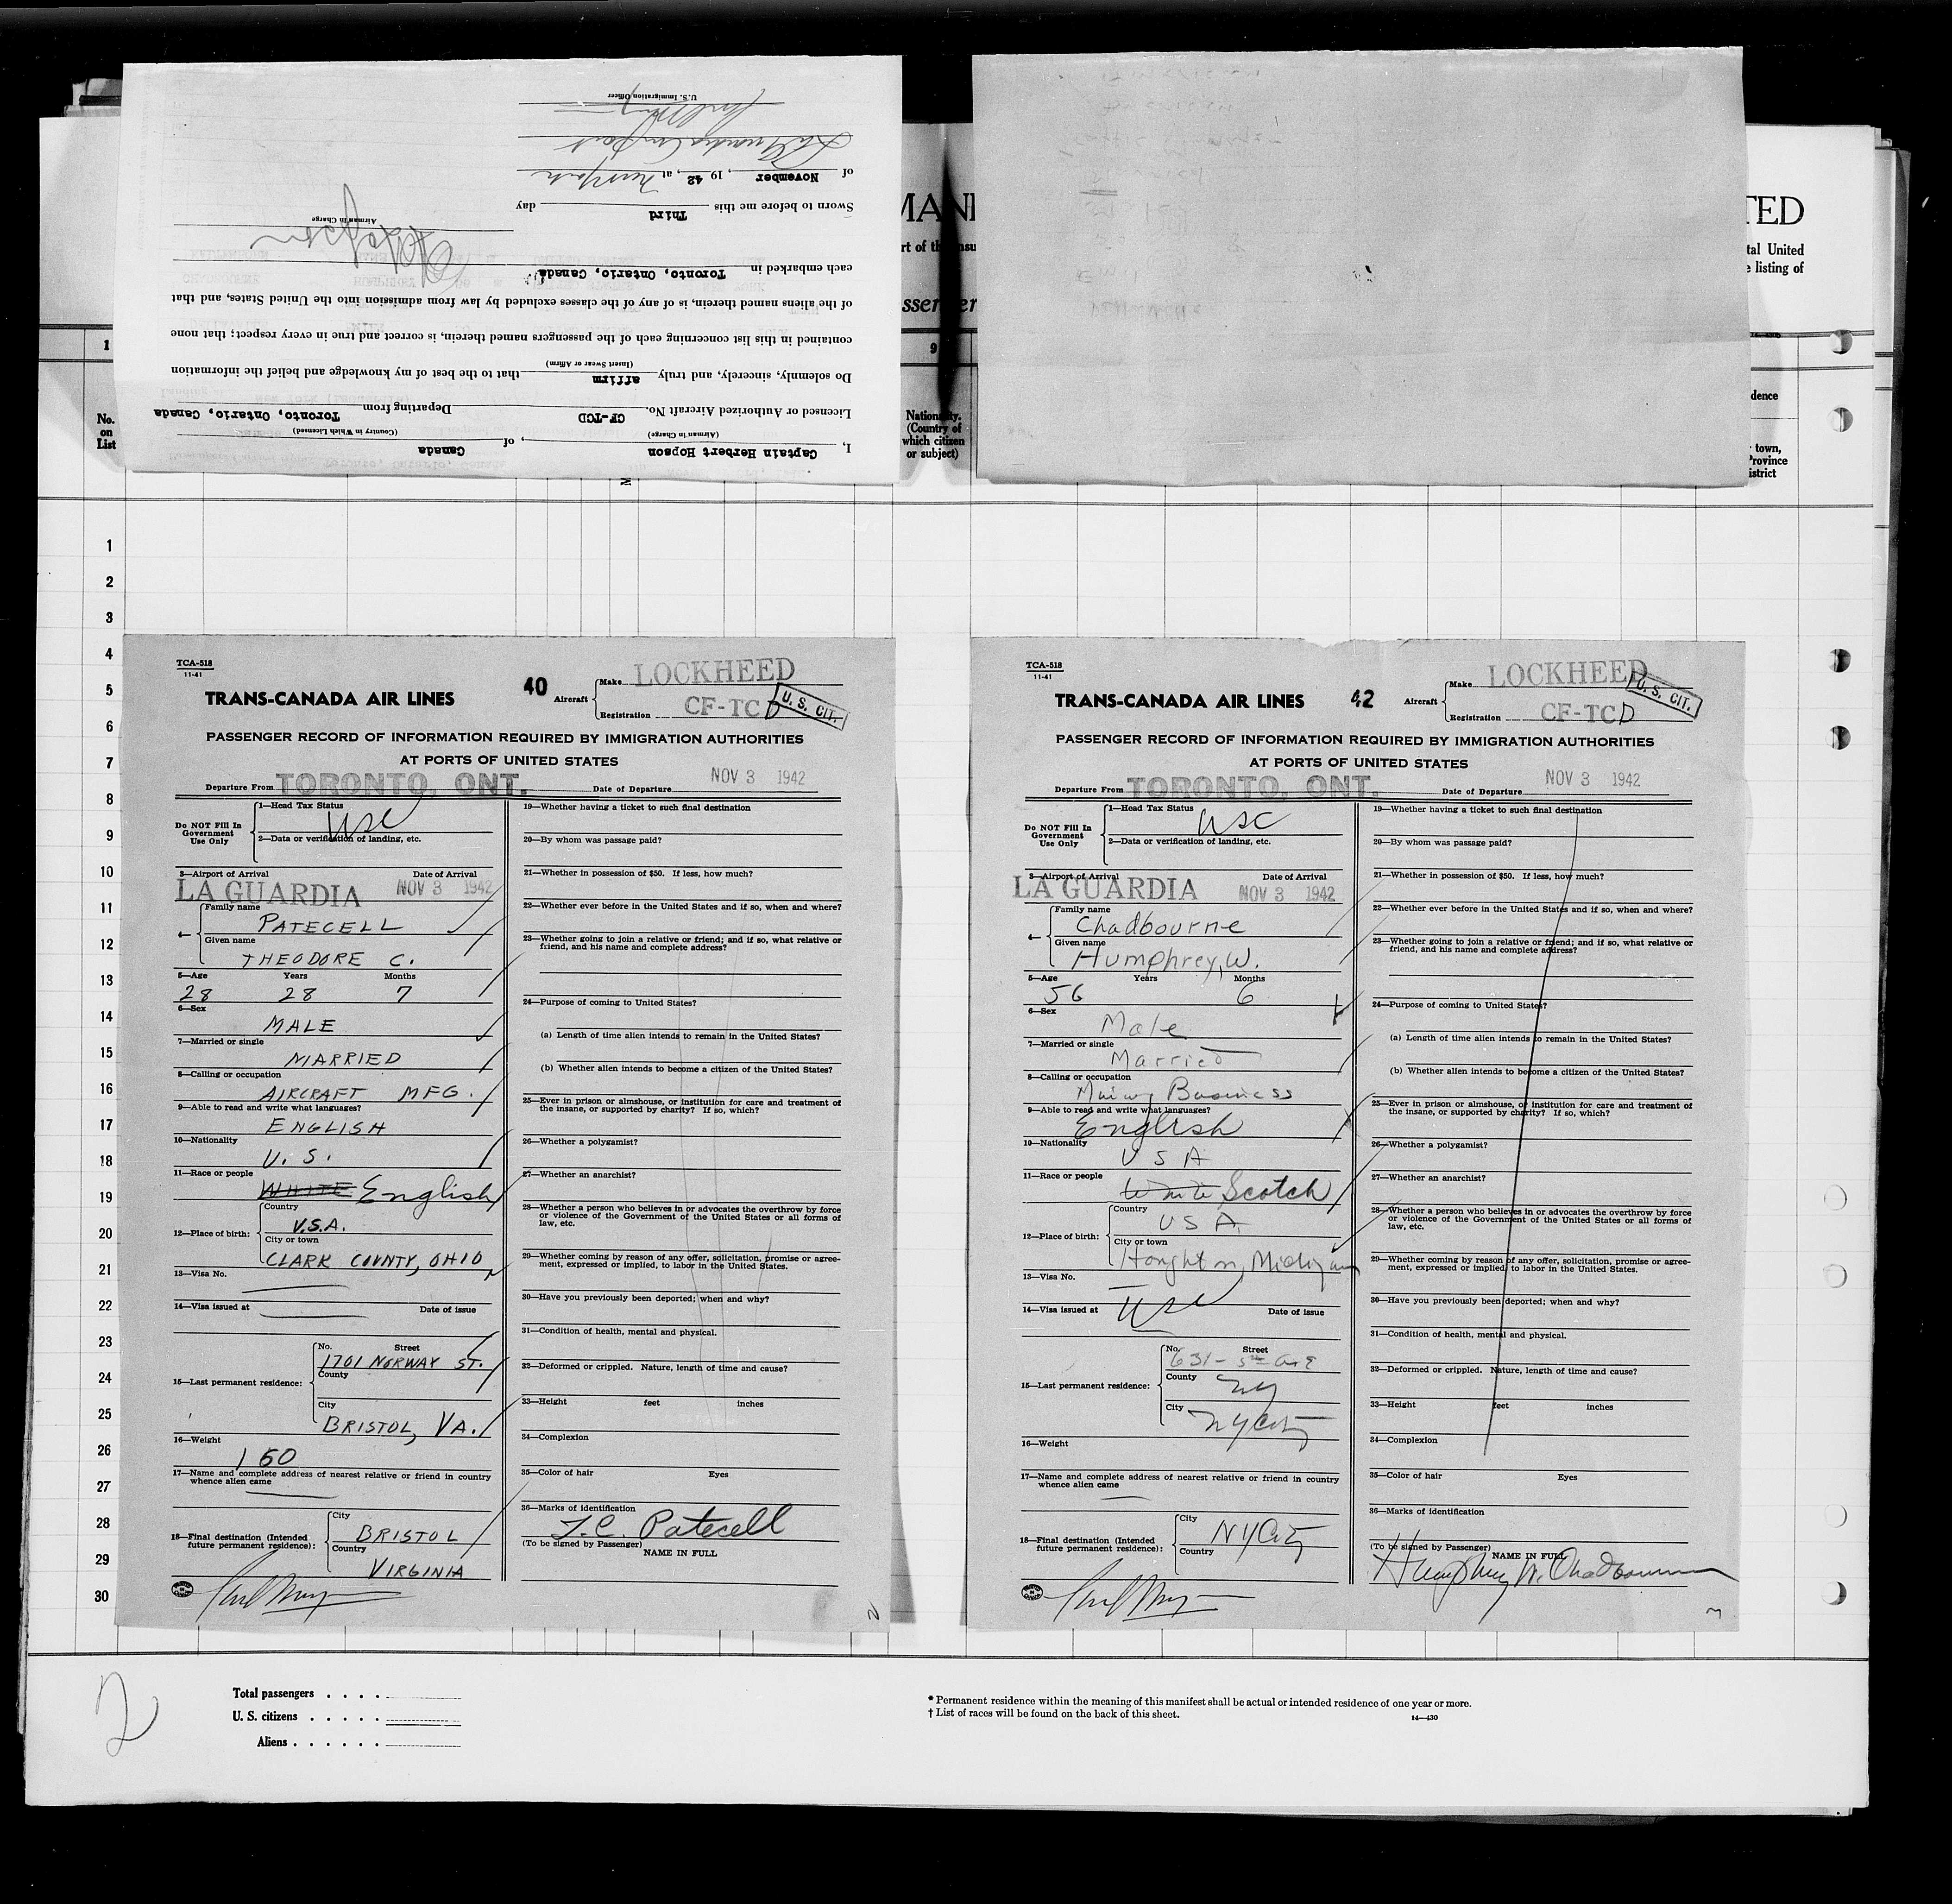 I, Captain Herbert Hopson, of Canada
(Airman in Charge) (Country in Which Licensed)
Licensed or Authorized Aircraft No. CF-TCD Departing from Toronto, Ontario, Canada
Do solemnly, sincerely, and truly affirm that to the best of my knowledge and belief the information
(Insert Swear or Affirm)
contained in this list concerning each of the passengers named therein, is correct and true in every respect; that none
of the aliens named therein, is of any of the classes excluded by law from admission into the United States, and that
each embarked in Toronto, Ontario, Canada.
Airman in Charge
Sworn to before me this Third day
of November, 19 42, at New York
U.S. Immigration Officer
MANI
TED
rt of th
nsu
tal United
e listing of
1
9
No.
on
List
Nationality.
(Country of
which citizen
or subject)
dence
town,
Province
istrict
1
2
3
4
5
6
7
8
9
10
11
12
13
14
15
16
17
18
19
20
21
22
23
24
25
26
27
28
29
30
TCA-518
11-41
TRANS-CANADA AIR LINES 40 Aircraft
Make LOCKHEED
Registration CF-TCD
U. S. CIT.
PASSENGER RECORD OF INFORMATION REQUIRED BY IMMIGRATION AUTHORITIES
AT PORTS OF UNITED STATES
Departure From TORONTO, ONT. Date of Departure NOV 3 1942
Do NOT Fill In
Government
Use Only
1—Head Tax Status
USC
2—Data or verification of landing, etc.
3—Airport of Arrival Date of Arrival
LA GUARDIA NOV 3 1942
4—
Family name
PATECELL
Given name
THEODORE C.
5—Age Years Months
28 28 7
6—Sex
MALE
7—Married or single
MARRIED
8—Calling or occupation
AIRCRAFT MFG.
9—Able to read and write what languages?
ENGLISH
10—Nationality
U. S.
11—Race or people
WHITE English
12—Place of birth:
Country
U.S.A.
City or town
CLARK COUNTY, OHIO
13—Visa No.
14—Visa issued at Date of issue
15—Last permanent residence:
No. Street
1701 NORWAY ST.
County
City
BRISTOL, VA.
16—Weight
160
17—Name and complete address of nearest relative or friend in country
whence alien came
18—Final destination (Intended
future permanent residence):
City
BRISTOL
Country
VIRGINIA
19—Whether having a ticket to such final destination
20—By whom was passage paid?
21—Whether in possession of $50. If less, how much?
22—Whether ever before in the United States and if so, when and where?
23—Whether going to join a relative or friend; and if so, what relative or
friend, and his name and complete address?
24—Purpose of coming to United States?
(a) Length of time alien intends to remain in the United States?
(b) Whether alien intends to become a citizen of the United States?
25—Ever in prison or almshouse, or institution for care and treatment of
the insane, or supported by charity? If so, which?
26—Whether a polygamist?
27—Whether an anarchist?
28—Whether a person who believes in or advocates the overthrow by force
or violence of the Government of the United States or all forms of
law, etc.
29—Whether coming by reason of any offer, solicitation, promise or agree-
ment, expressed or implied, to labor in the United States.
30—Have you previously been deported; when and why?
31—Condition of health, mental and physical.
32—Deformed or crippled. Nature, length of time and cause?
33—Height feet inches
34—Complexion
35—Color of hair Eyes
36—Marks of identification
T.C. Patecell
(To be signed by Passenger)
NAME IN FULL
2
TCA-518
11-41
TRANS-CANADA AIR LINES 42 Aircraft
Make LOCKHEED
Registration CF-TCD
U. S. CIT.
PASSENGER RECORD OF INFORMATION REQUIRED BY IMMIGRATION AUTHORITIES
AT PORTS OF UNITED STATES
Departure From TORONTO, ONT. Date of Departure NOV 3 1942
Do NOT Fill In
Government
Use Only
1—Head Tax Status
USC
2—Data or verification of landing, etc.
3—Airport of Arrival Date of Arrival
LA GUARDIA NOV 3 1942
4—
Family name
Chadbourne
Given name
Humphrey, W.
5—Age Years Months
56 6
6—Sex
Male
7—Married or single
Married
8—Calling or occupation
Mining Business
9—Able to read and write what languages?
English
10—Nationality
U S A
11—Race or people
White Scotch
12—Place of birth:
Country
U S A.
City or town
Houghton, Michigan
13—Visa No.
14—Visa issued at Date of issue
USC
15—Last permanent residence:
No. Street
631-5th Ave
County
NY
City
NY City
16—Weight
17—Name and complete address of nearest relative or friend in country
whence alien came
18—Final destination (Intended
future permanent residence):
City
NY City
Country
19—Whether having a ticket to such final destination
20—By whom was passage paid?
21—Whether in possession of $50. If less, how much?
22—Whether ever before in the United States and if so, when and where?
23—Whether going to join a relative or friend; and if so, what relative or
friend, and his name and complete address?
24—Purpose of coming to United States?
(a) Length of time alien intends to remain in the United States?
(b) Whether alien intends to become a citizen of the United States?
25—Ever in prison or almshouse, or institution for care and treatment of
the insane, or supported by charity? If so, which?
26—Whether a polygamist?
27—Whether an anarchist?
28—Whether a person who believes in or advocates the overthrow by force
or violence of the Government of the United States or all forms of
law, etc.
29—Whether coming by reason of any offer, solicitation, promise or agree-
ment, expressed or implied, to labor in the United States.
30—Have you previously been deported; when and why?
31—Condition of health, mental and physical.
32—Deformed or crippled. Nature, length of time and cause?
33—Height feet inches
34—Complexion
35—Color of hair Eyes
36—Marks of identification
(To be signed by Passenger)
NAME IN FULL
Humphrey W. Chadbourne
3
2
Total passengers . . . .
U. S. citizens . . . . .
Aliens . . . . . .
* Permanent residence within the meaning of this manifest shall be actual or intended residence of one year or more.
† List of races will be found on the back of this sheet.
14—430